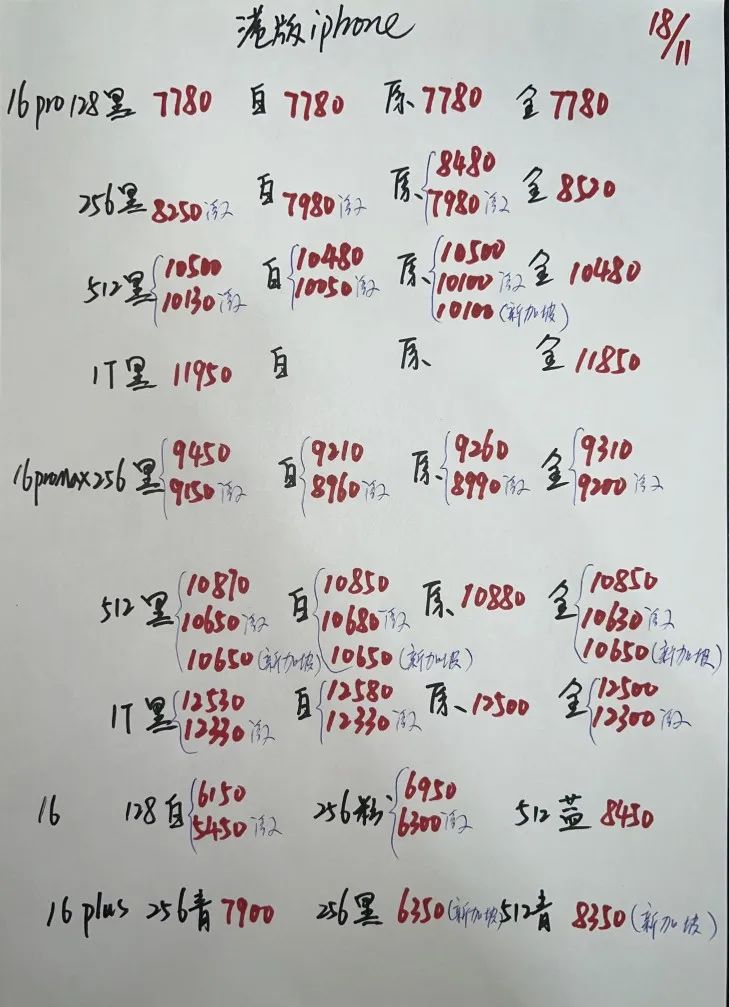 港版iphone
18/11
16pro128黑 7780 白 7780 原 7780 金 7780
256黑 8250激 白 7980激 原 8480 7980激 金 8520
512黑 10500 10130激 白 10480 10050激 原 10500 10100激 10100(新加坡) 金 10480
1T黑 11950 白 原 金 11850
16promax256黑 9450 9150激 白 9210 8960激 原 9260 8990激 金 9310 9200激
512黑 10870 10650激 10650(新加坡) 白 10850 10680激 10650(新加坡) 原 10880 金 10850 10630激 10650(新加坡)
1T黑 12530 12330激 白 12580 12330激 原 12500 金 12500 12300激
16 128白 6150 5450激 256粉 6950 6300激 512蓝 8450
16 plus 256青 7900 256黑 6350(新加坡) 512青 8350(新加坡)